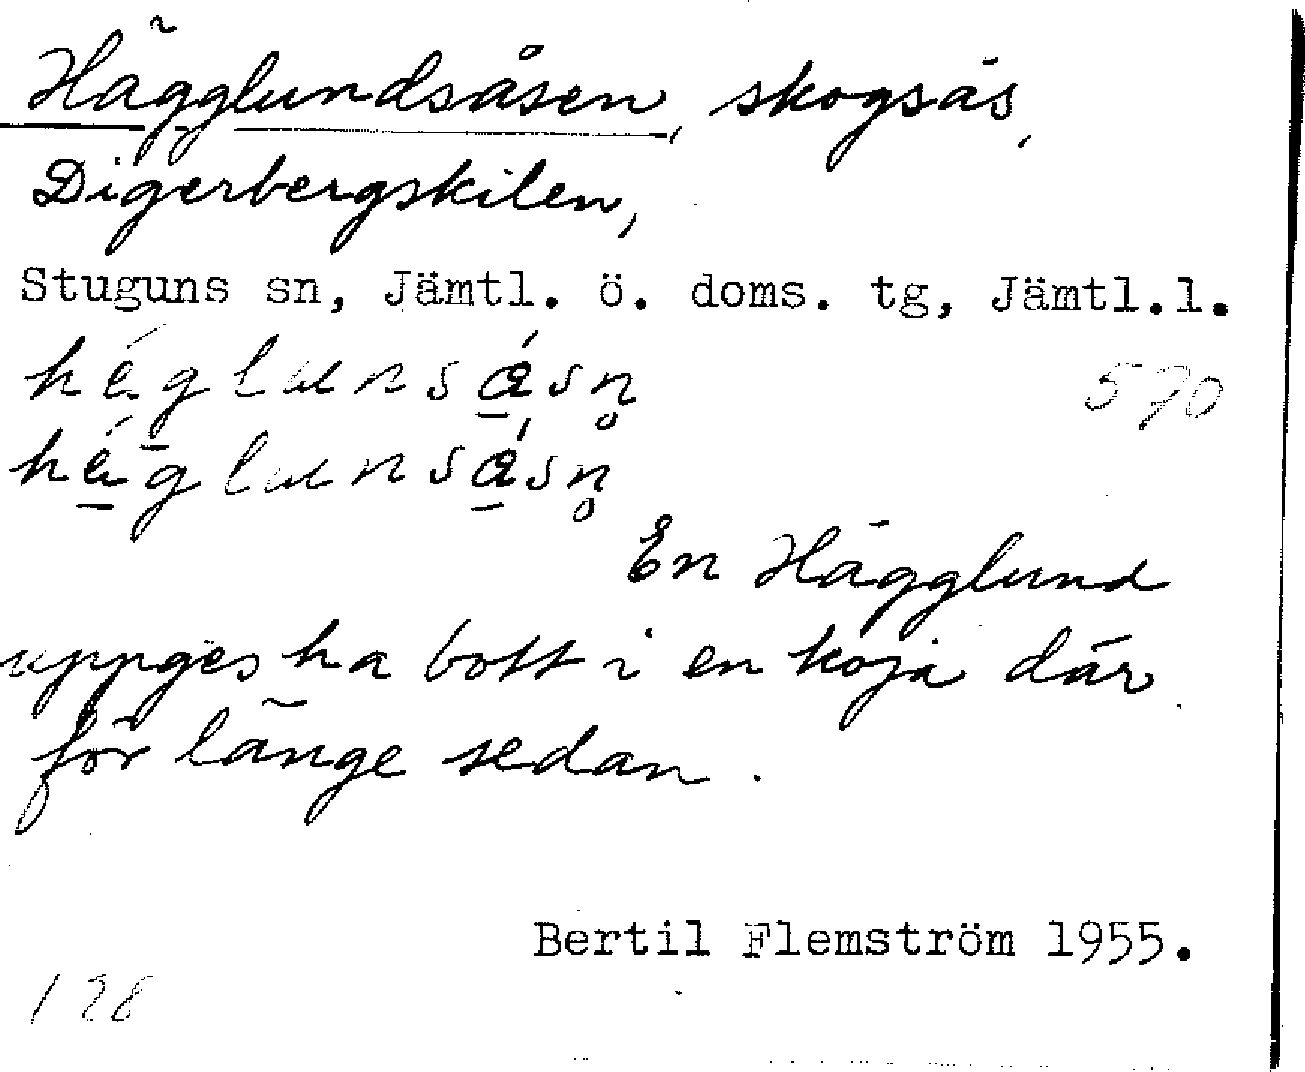 Hägglundsåsen, skogsås,
Digerbergskilen,
Stuguns sn, Jämtl. ö. doms. tg, Jämtl.l.
hég̲lunsá̲sn̥ 570
hé̲glunsá̲sn̥
En Hägglund
uppges ha bott i en koja där
för länge sedan.
Bertil Flemström 1955.
128